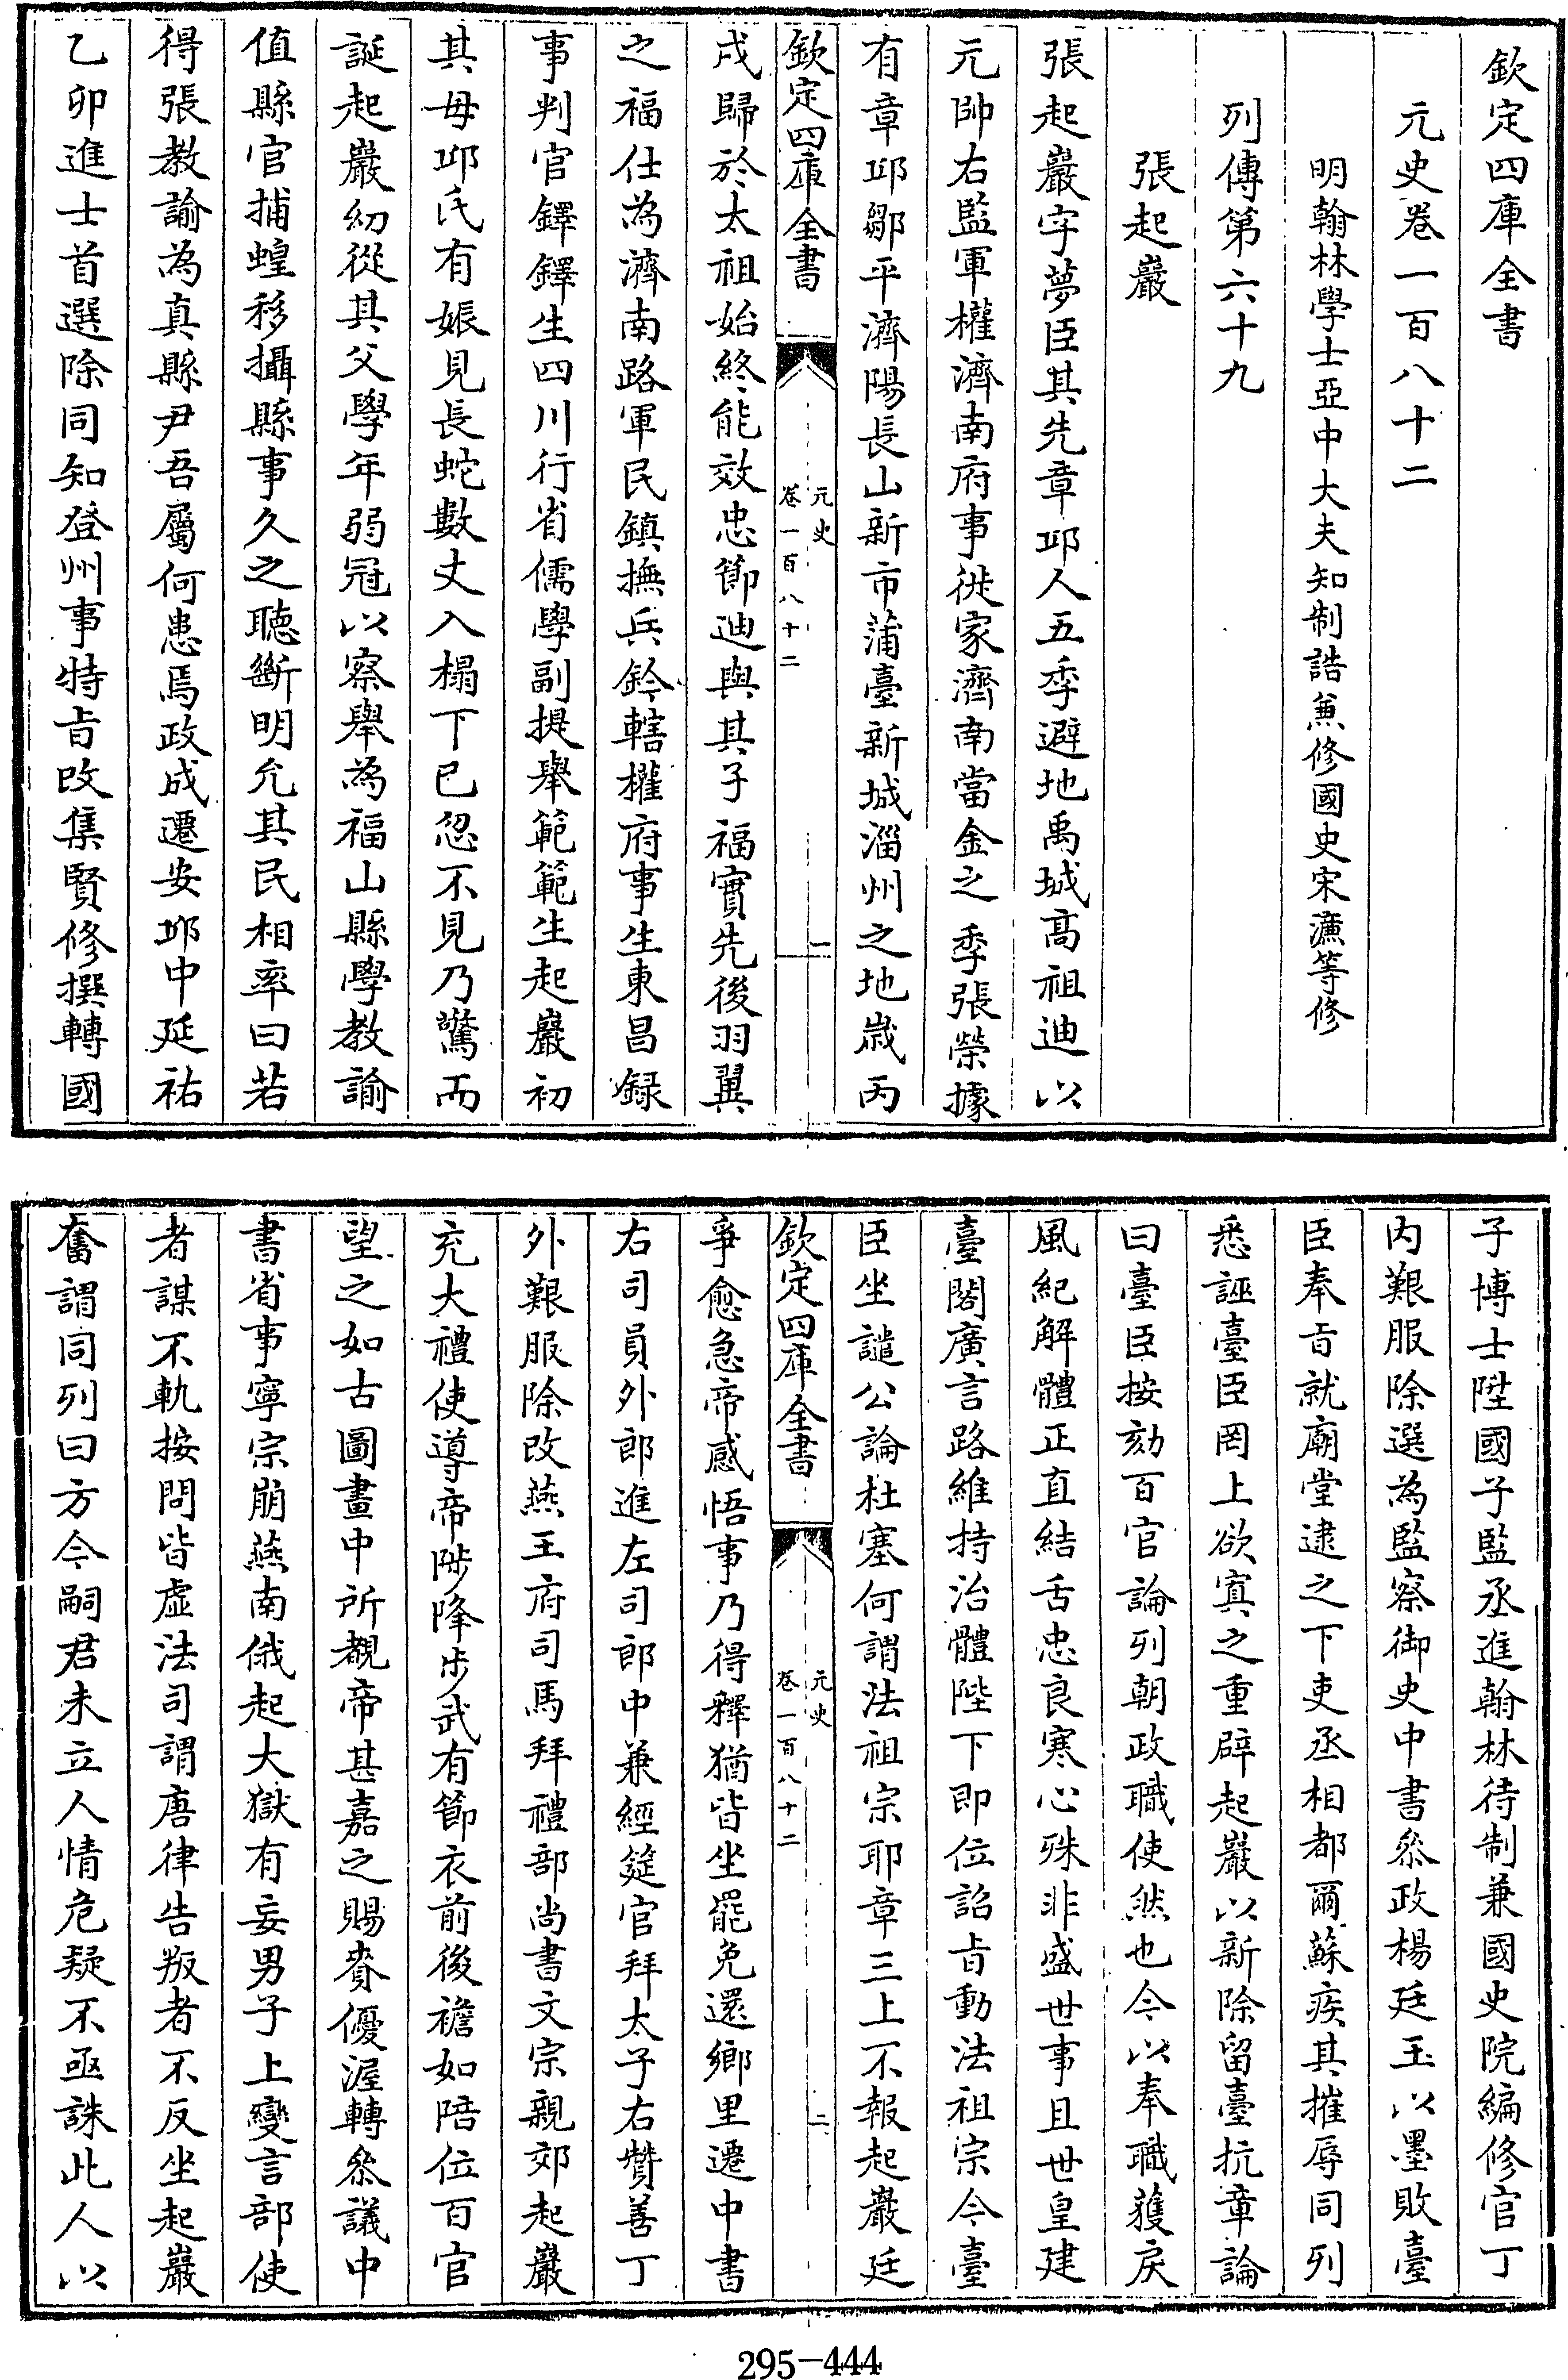 欽定四庫全書
元史卷一百八十二
明翰林學士亞中大夫知制誥兼修國史宋濂等修
列傳第六十九
張起巖
張起巖字夢臣其先章邱人五季避地禹城高祖迪以
元帥右監軍權濟南府事徙家濟南當金之季張榮據
有章邱鄒平濟陽長山新市蒲臺新城淄州之地歲丙
欽定四庫全書
元史
卷一百八十二
一
戌歸於太祖始終能效忠節迪與其子福實先後羽翼
之福仕為濟南路軍民鎮撫兵鈐轄權府事生東昌録
事判官鐸鐸生四川行省儒學副提舉範範生起巖初
其母邱氏有娠見長蛇數丈入榻下已忽不見乃驚而
誕起巖幼從其父學年弱冠以察舉為福山縣學教諭
值縣官捕蝗移攝縣事久之聽斷明允其民相率曰若
得張教諭為真縣尹吾屬何患焉政成遷安邱中延祐
乙卯進士首選除同知登州事特旨改集賢修撰轉國
子博士陞國子監丞進翰林待制兼國史院編修官丁
内艱服除選為監察御史中書叅政楊廷玉以墨敗臺
臣奉旨就廟堂逮之下吏丞相都爾蘇疾其摧辱同列
悉誣臺臣罔上欲寘之重辟起巖以新除留臺抗章論
曰臺臣按劾百官論列朝政職使然也今以奉職獲戾
風紀解體正直結舌忠良寒心殊非盛世事且世皇建
臺閣廣言路維持治體陛下即位詔旨動法祖宗今臺
臣坐譴公論杜塞何謂法祖宗耶章三上不報起巖廷
欽定四庫全書
元史
卷一百八十二
二
爭愈急帝感悟事乃得釋猶皆坐罷免還鄉里遷中書
右司員外郎進左司郎中兼經筵官拜太子右贊善丁
外艱服除改燕王府司馬拜禮部尚書文宗親郊起巖
充大禮使導帝陟降步武有節衣前後襜如陪位百官
望之如古圖畫中所覩帝甚嘉之賜賚優渥轉叅議中
書省事寧宗崩燕南俄起大獄有妄男子上變言部使
者謀不軌按問皆虛法司謂唐律告叛者不反坐起巖
奮謂同列曰方今嗣君未立人情危疑不亟誅此人以
295-444